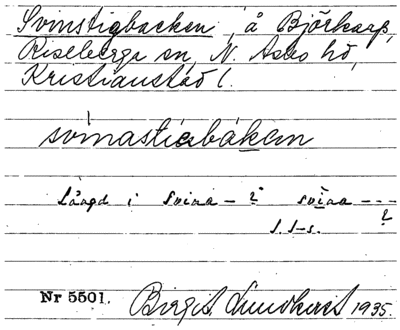 Svinstigbacken, å Björkarp,
Riseberga sn, N. Åsbo hd,
Kristianstad l.
svinastiabaken
Längd i svina - ? svina ---
?
Nr 5501. Birgit Lundkvist 1935.